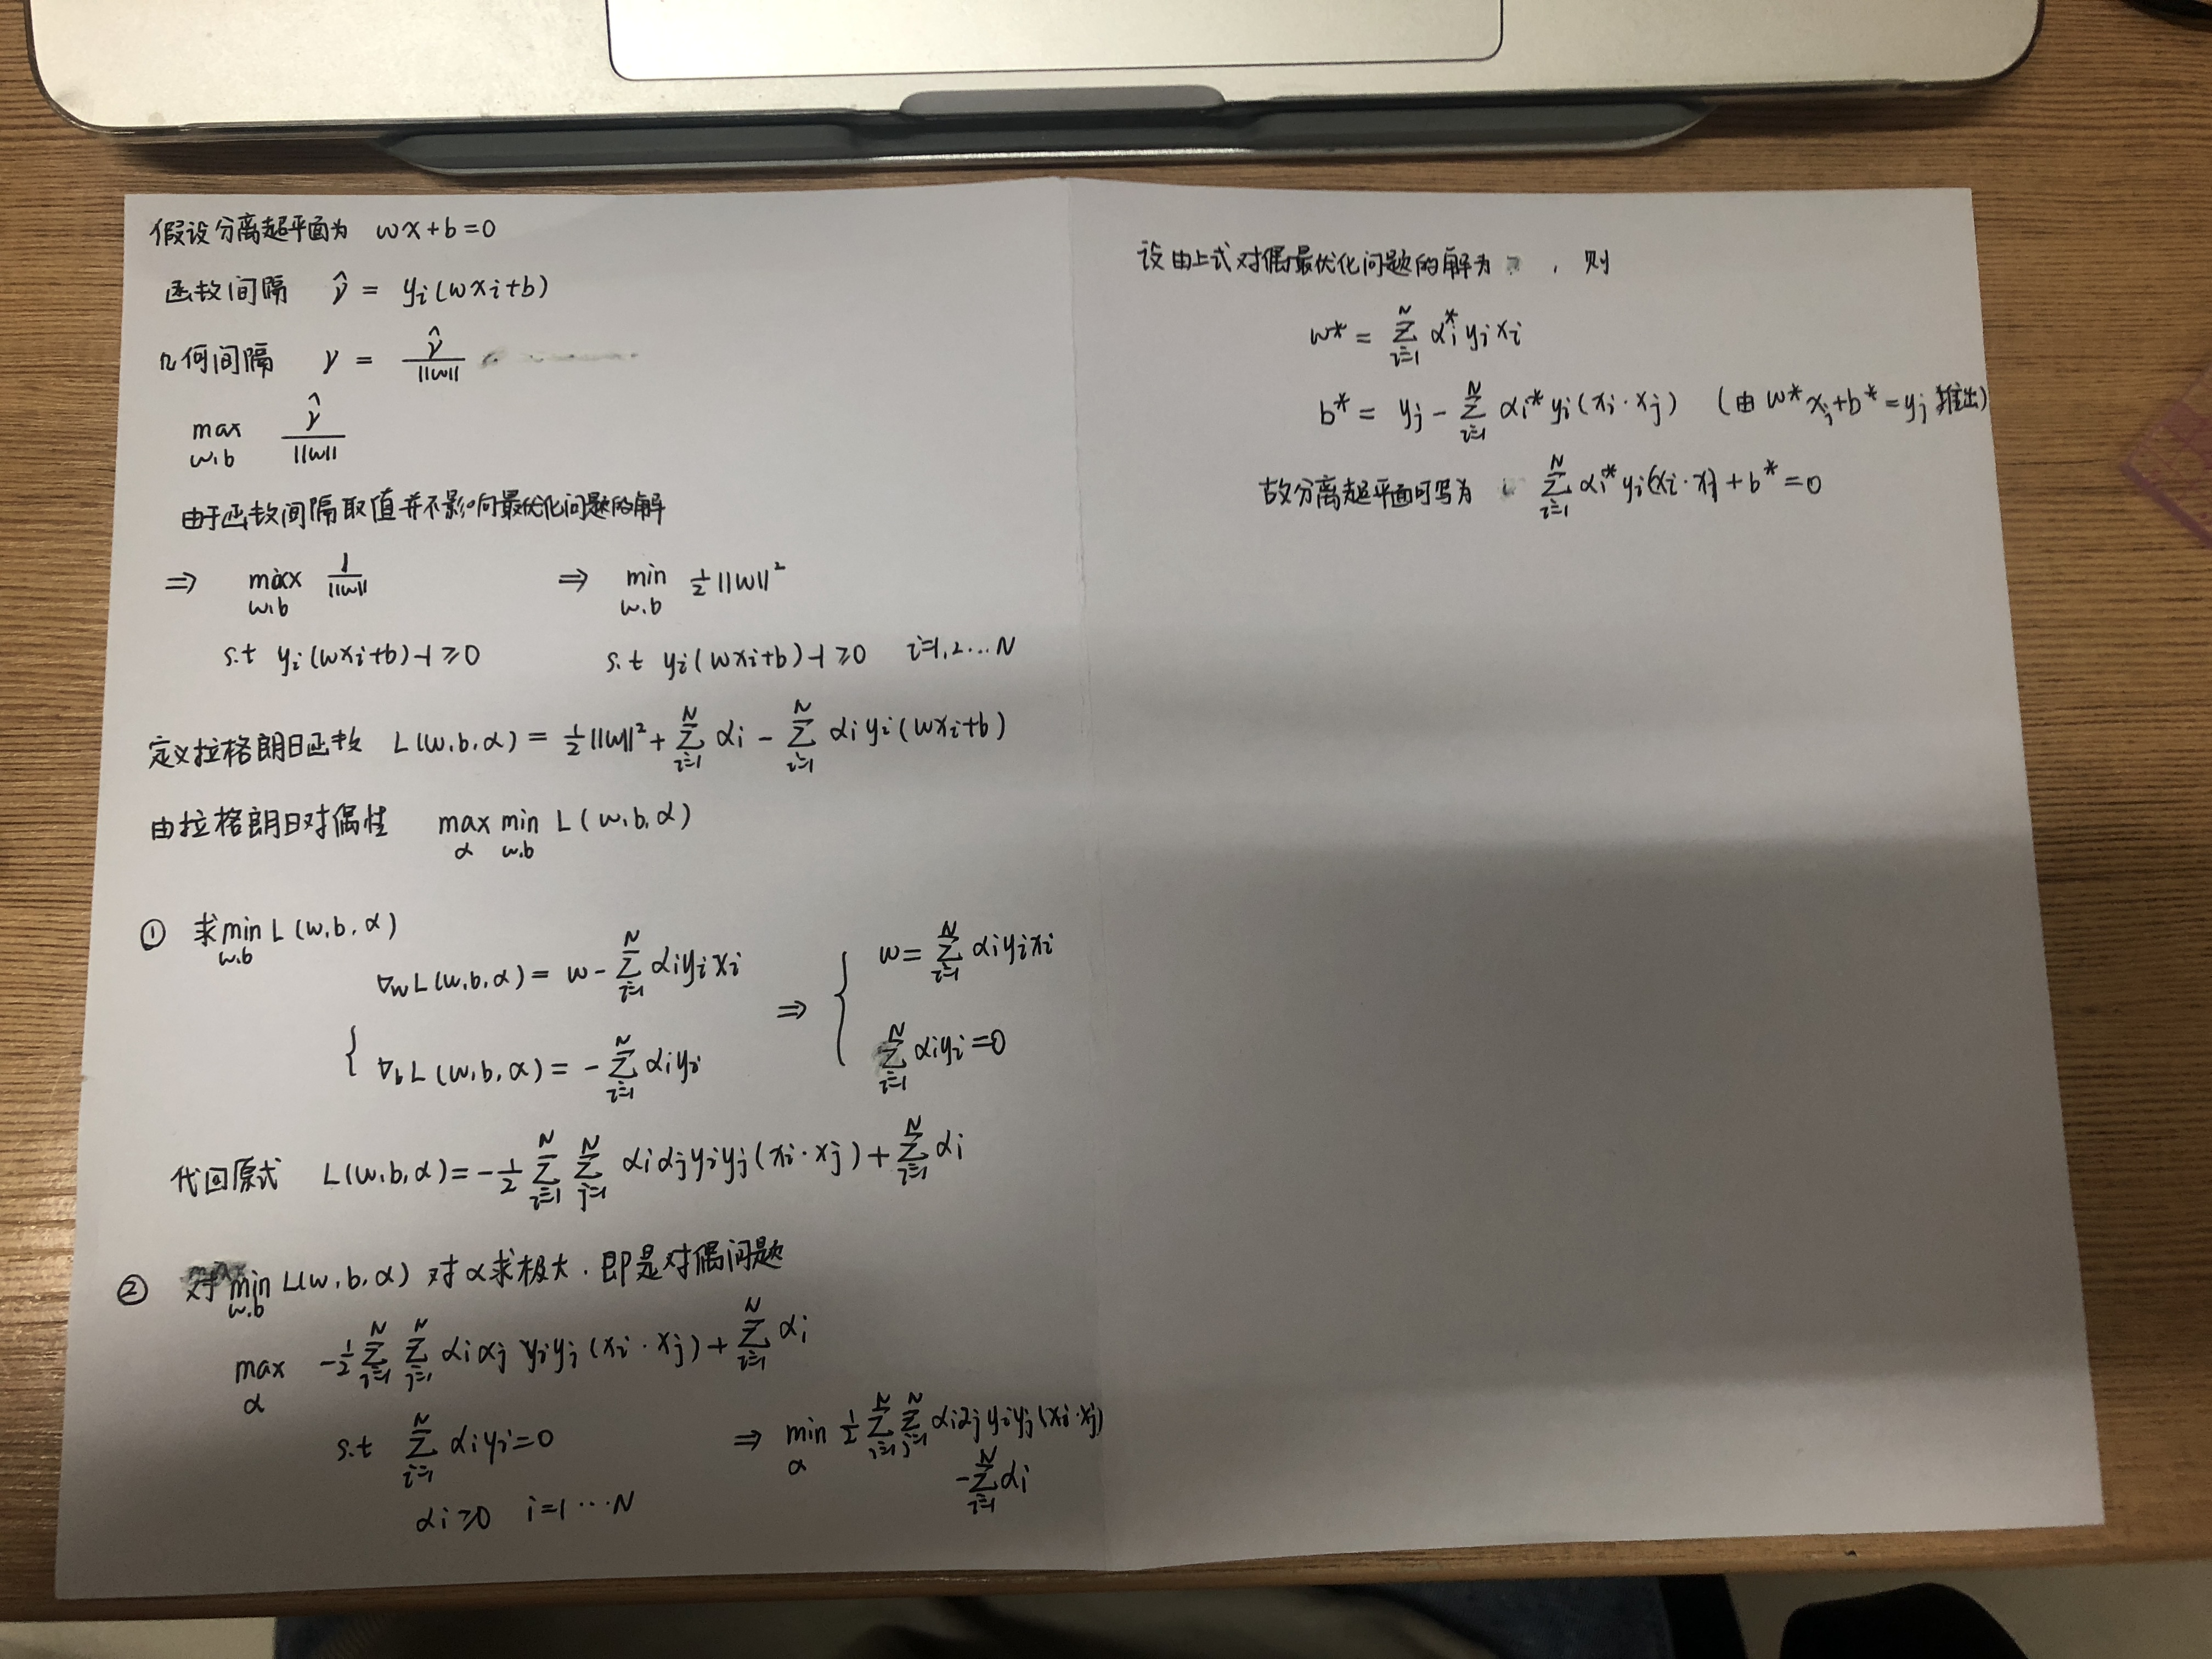 假设分离超平面为 wx+b=0
函数间隔 γ̂ = yi(wxi+b)
几何间隔 γ = γ̂/||w||
max w,b γ̂/||w||
由于函数间隔取值并不影响最优化问题的解
⇒ max w,b 1/||w|| ⇒ min w,b ½||w||²
s.t yi(wxi+b)-1≥0 s.t yi(wxi+b)-1≥0 i=1,2...N
定义拉格朗日函数 L(w,b,α) = ½||w||² + Σ_{i=1}^{N} αi - Σ_{i=1}^{N} αiyi(wxi+b)
由拉格朗日对偶性 max α min w,b L(w,b,α)
① 求 min w,b L(w,b,α)
∇wL(w,b,α) = w - Σ_{i=1}^{N} αiyixi ⇒ w = Σ_{i=1}^{N} αiyixi
∇bL(w,b,α) = - Σ_{i=1}^{N} αiyi Σ_{i=1}^{N} αiyi=0
代回原式 L(w,b,α) = -½ Σ_{i=1}^{N} Σ_{j=1}^{N} αiαjyiyj(xi·xj) + Σ_{i=1}^{N} αi
② 对 min w,b L(w,b,α) 对α求极大,即是对偶问题
max α -½ Σ_{i=1}^{N} Σ_{j=1}^{N} αiαjyiyj(xi·xj) + Σ_{i=1}^{N} αi
s.t Σ_{i=1}^{N} αiyi=0 ⇒ min α ½ Σ_{i=1}^{N} Σ_{j=1}^{N} αiαjyiyj(xi·xj)
- Σ_{i=1}^{N} αi
αi≥0 i=1...N
设由上式对偶最优化问题的解为 , 则
w* = Σ_{i=1}^{N} αi*yixi
b* = yj - Σ_{i=1}^{N} αi*yi(xi·xj) (由w*xj+b*=yj推出)
故分离超平面可写为 Σ_{i=1}^{N} αi*yi(xi·xj)+b*=0